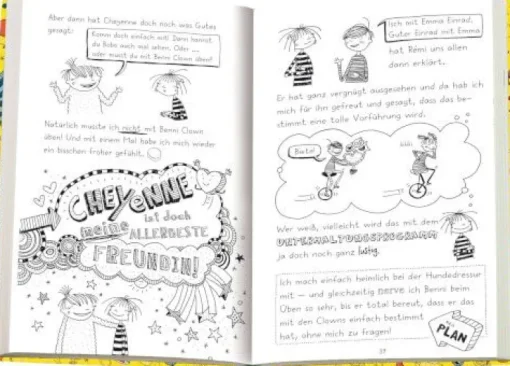 Aber dann hat Cheyenne doch noch was Gutes
gesagt:
Komm doch einfach mit! Dann kannst
du Bobo auch mal sehen. Oder ...
oder musst du mit Benni Clown üben?
Natürlich musste ich nicht mit Benni Clown
üben! Und mit einem Mal habe ich mich wieder
ein bisschen froher gefühlt.
CHEYENNE
ist doch
meine ALLERBESTE
FREUNDIN!
Isch mit Emma Einrad,
Guter Einrad mit Emma
hat Rémi uns allen
dann erklärt.
Er hat ganz vergnügt ausgesehen und da hab ich
mich für ihn gefreut und gesagt, dass das be-
stimmt eine tolle Vorführung wird.
Bitte!
hihi
Wer weiß, vielleicht wird das mit dem
UNTERHALTUNGSPROGRAMM
ja doch noch ganz lustig.
Ich mach einfach heimlich bei der Hundedressur
mit – und gleichzeitig nerve ich Benni beim
Üben so sehr, bis er total bereut, dass er das
mit den Clowns einfach bestimmt
hat, ohne mich zu fragen!
PLAN
37